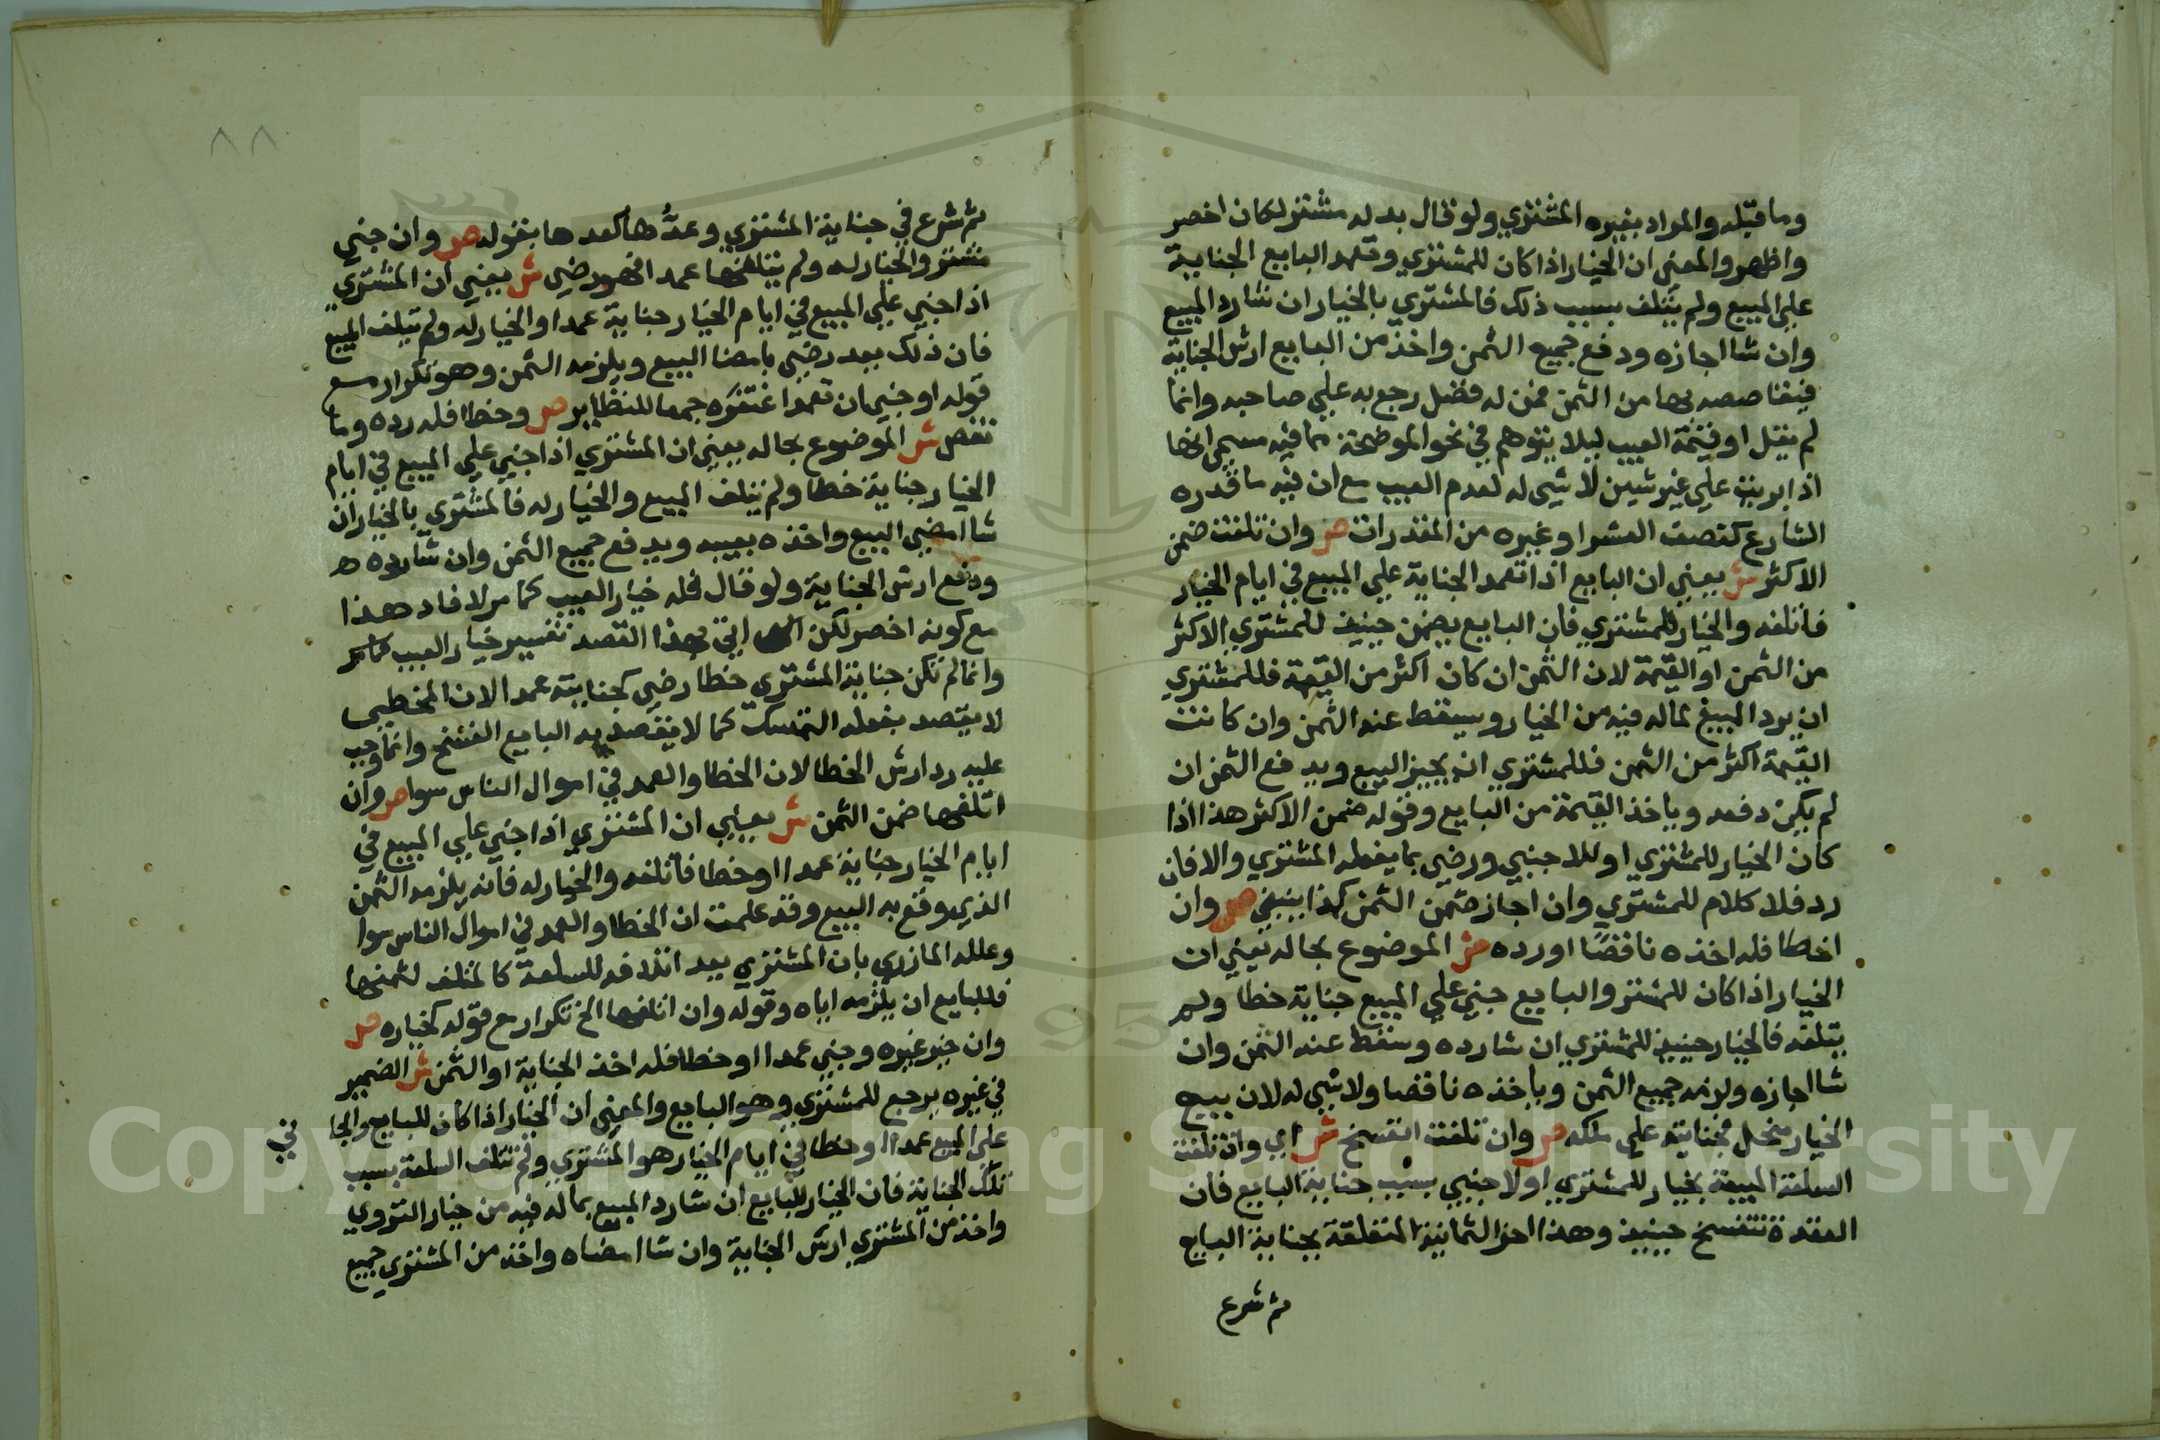 وما قبله والمراد بغيره المشتري ولو قال بدله مشتر لكان اخصر
واظهر والمعني ان الخيار اذا كان للمشتري وتعمد البايع الجناية
علي المبيع ولم يتلف بسبب ذلك فالمشتري بالخيار ان شا رد المبيع
وان شا اجازه ودفع جميع الثمن واخذ من البايع ارش الجناية
فيقاصصه بها من الثمن فمن له فضل رجع به علي صاحبه وانما
لم يقل او قيمة العيب ليلا يتوهم في نحو الموضحة مما فيه مسمي انها
اذا برئت علي غير شين لا شي له لعدم العيب مع ان فيه ما قدره
الشارع كنصف العشر او غيره من المقدرات ص وان تلفت ضمن
الاكثر ش يعني ان البايع اذا تعمد الجناية علي المبيع في ايام الخيار
فاتلفه والخيار للمشتري فان البايع يضمن حينيذ للمشتري الاكثر
من الثمن او القيمة لان الثمن ان كان اكثر من القيمة فللمشتري
ان يرد المبيع بماله فيه من الخيار ويسقط عنه الثمن وان كانت
القيمة اكثر من الثمن فللمشتري ان يجيز البيع ويدفع الثمن ان
لم يكن دفعه وياخذ القيمة من البايع وقوله ضمن الاكثر هذا اذا
كان الخيار للمشتري او للاجنبي ورضي بما يفعله المشتري والا فان
رد فلا كلام للمشتري وان اجاز ضمن الثمن كذا ينبغي ص وان
اخطا فله اخذه ناقصا او رده ش الموضوع بحاله يعني ان
الخيار اذا كان للمشتر والبايع جني علي المبيع جناية خطا ولم
يتلفه فالخيار حينيذ للمشتري ان شا رده وسقط عنه الثمن وان
شا اجازه ولزمه جميع الثمن وياخذه ناقصا ولا شي له لان بيع
الخيار منحل فجنايته علي ملكه ص وان تلفت انفسخ ش اي وان تلفت
السلعة المبيعة بخيار للمشتري او لاجنبي بسبب جناية البايع فان
العقدة تنفسخ حينيذ وهذا اخر الثمانية المتعلقة بجناية البايع
ثم شرع
٨٨
ثم شرع في جناية المشتري وعدها كعدها بقوله ص وان جني
مشتر والخيار له ولم يتلفها عمدا فهو رضي ش يعني ان المشتري
اذا جني علي المبيع في ايام الخيار جناية عمدا والخيار له ولم يتلف المبيع
فان ذلك يعد رضي بامضا البيع ويلزمه الثمن وهو تكرار مع
قوله او جني ان تعمد اغتفره جمعا للنظاير ص وخطا فله رده وما
نقص ش الموضوع بحاله يعني ان المشتري اذا جني علي المبيع في ايام
الخيار جناية خطا ولم يتلف المبيع والخيار له فالمشتري بالخيار ان
شا امضي البيع واخذه بعيبه ويدفع جميع الثمن وان شا رده
ودفع ارش الجناية ولو قال فله خيار العيب كما مر لافاد هذا
مع كونه اخصر لكن اتي بهذا القصد تفسير خيار العيب كما مر
وانما لم تكن جناية المشتري خطا رضي كجنايته عمدا لان المخطيي
لا يقصد بفعله التمسك كما لا يقصد به البايع الفسخ وانما وجب
عليه رد ارش الخطا لان الخطا والعمد في اموال الناس سوا ص وان
اتلفها ضمن الثمن ش يعني ان المشتري اذا جني علي المبيع في
ايام الخيار جناية عمدا او خطا فاتلفه والخيار له فانه يلزمه الثمن
الذي وقع به البيع وقد علمت ان الخطا والعمد في اموال الناس سوا
وعلله المازري بان المشتري يعد اتلافه للسلعة كالمتلف لثمنها
فللبايع ان يلزمه اياه وقوله وان اتلفها الخ تكرار مع قوله كخياره ص
وان خير غيره وجني عمدا او خطا فله اخذ الجناية او الثمن ش الضمير
في غيره يرجع للمشتري وهو البايع والمعني ان الخيار اذا كان للبايع والجا
ني
علي المبيع عمدا او خطا في ايام الخيار هو المشتري ولم تتلف السلعة بسبب
تلك الجناية فان الخيار للبايع ان شا رد المبيع بماله فيه من خيار التروي
واخذ من المشتري ارش الجناية وان شا امضاه واخذ من المشتري جميع
Copyright © King Saud University